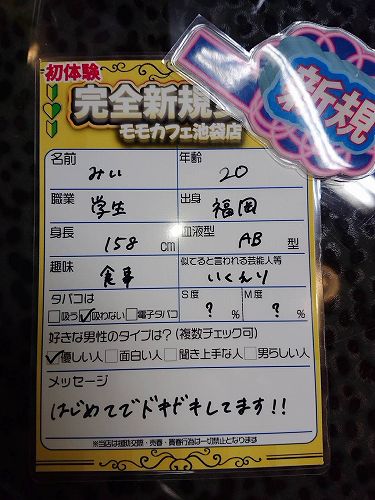 初体験
新規
完全新規
モモカフェ池袋店
名前 みい 年齢 20
職業 学生 出身 福岡
身長 158 cm 血液型 AB 型
趣味 食事 似てると言われる芸能人等 いくえり
タバコは S度 M度
□吸う ☑吸わない □電子タバコ ? % ? %
好きな男性のタイプは?(複数チェック可)
☑優しい人 □面白い人 □聞き上手な人 □男らしい人
メッセージ
はじめてでドキドキしてます!!
※当店は援助交際・売春・買春行為は一切禁止となります